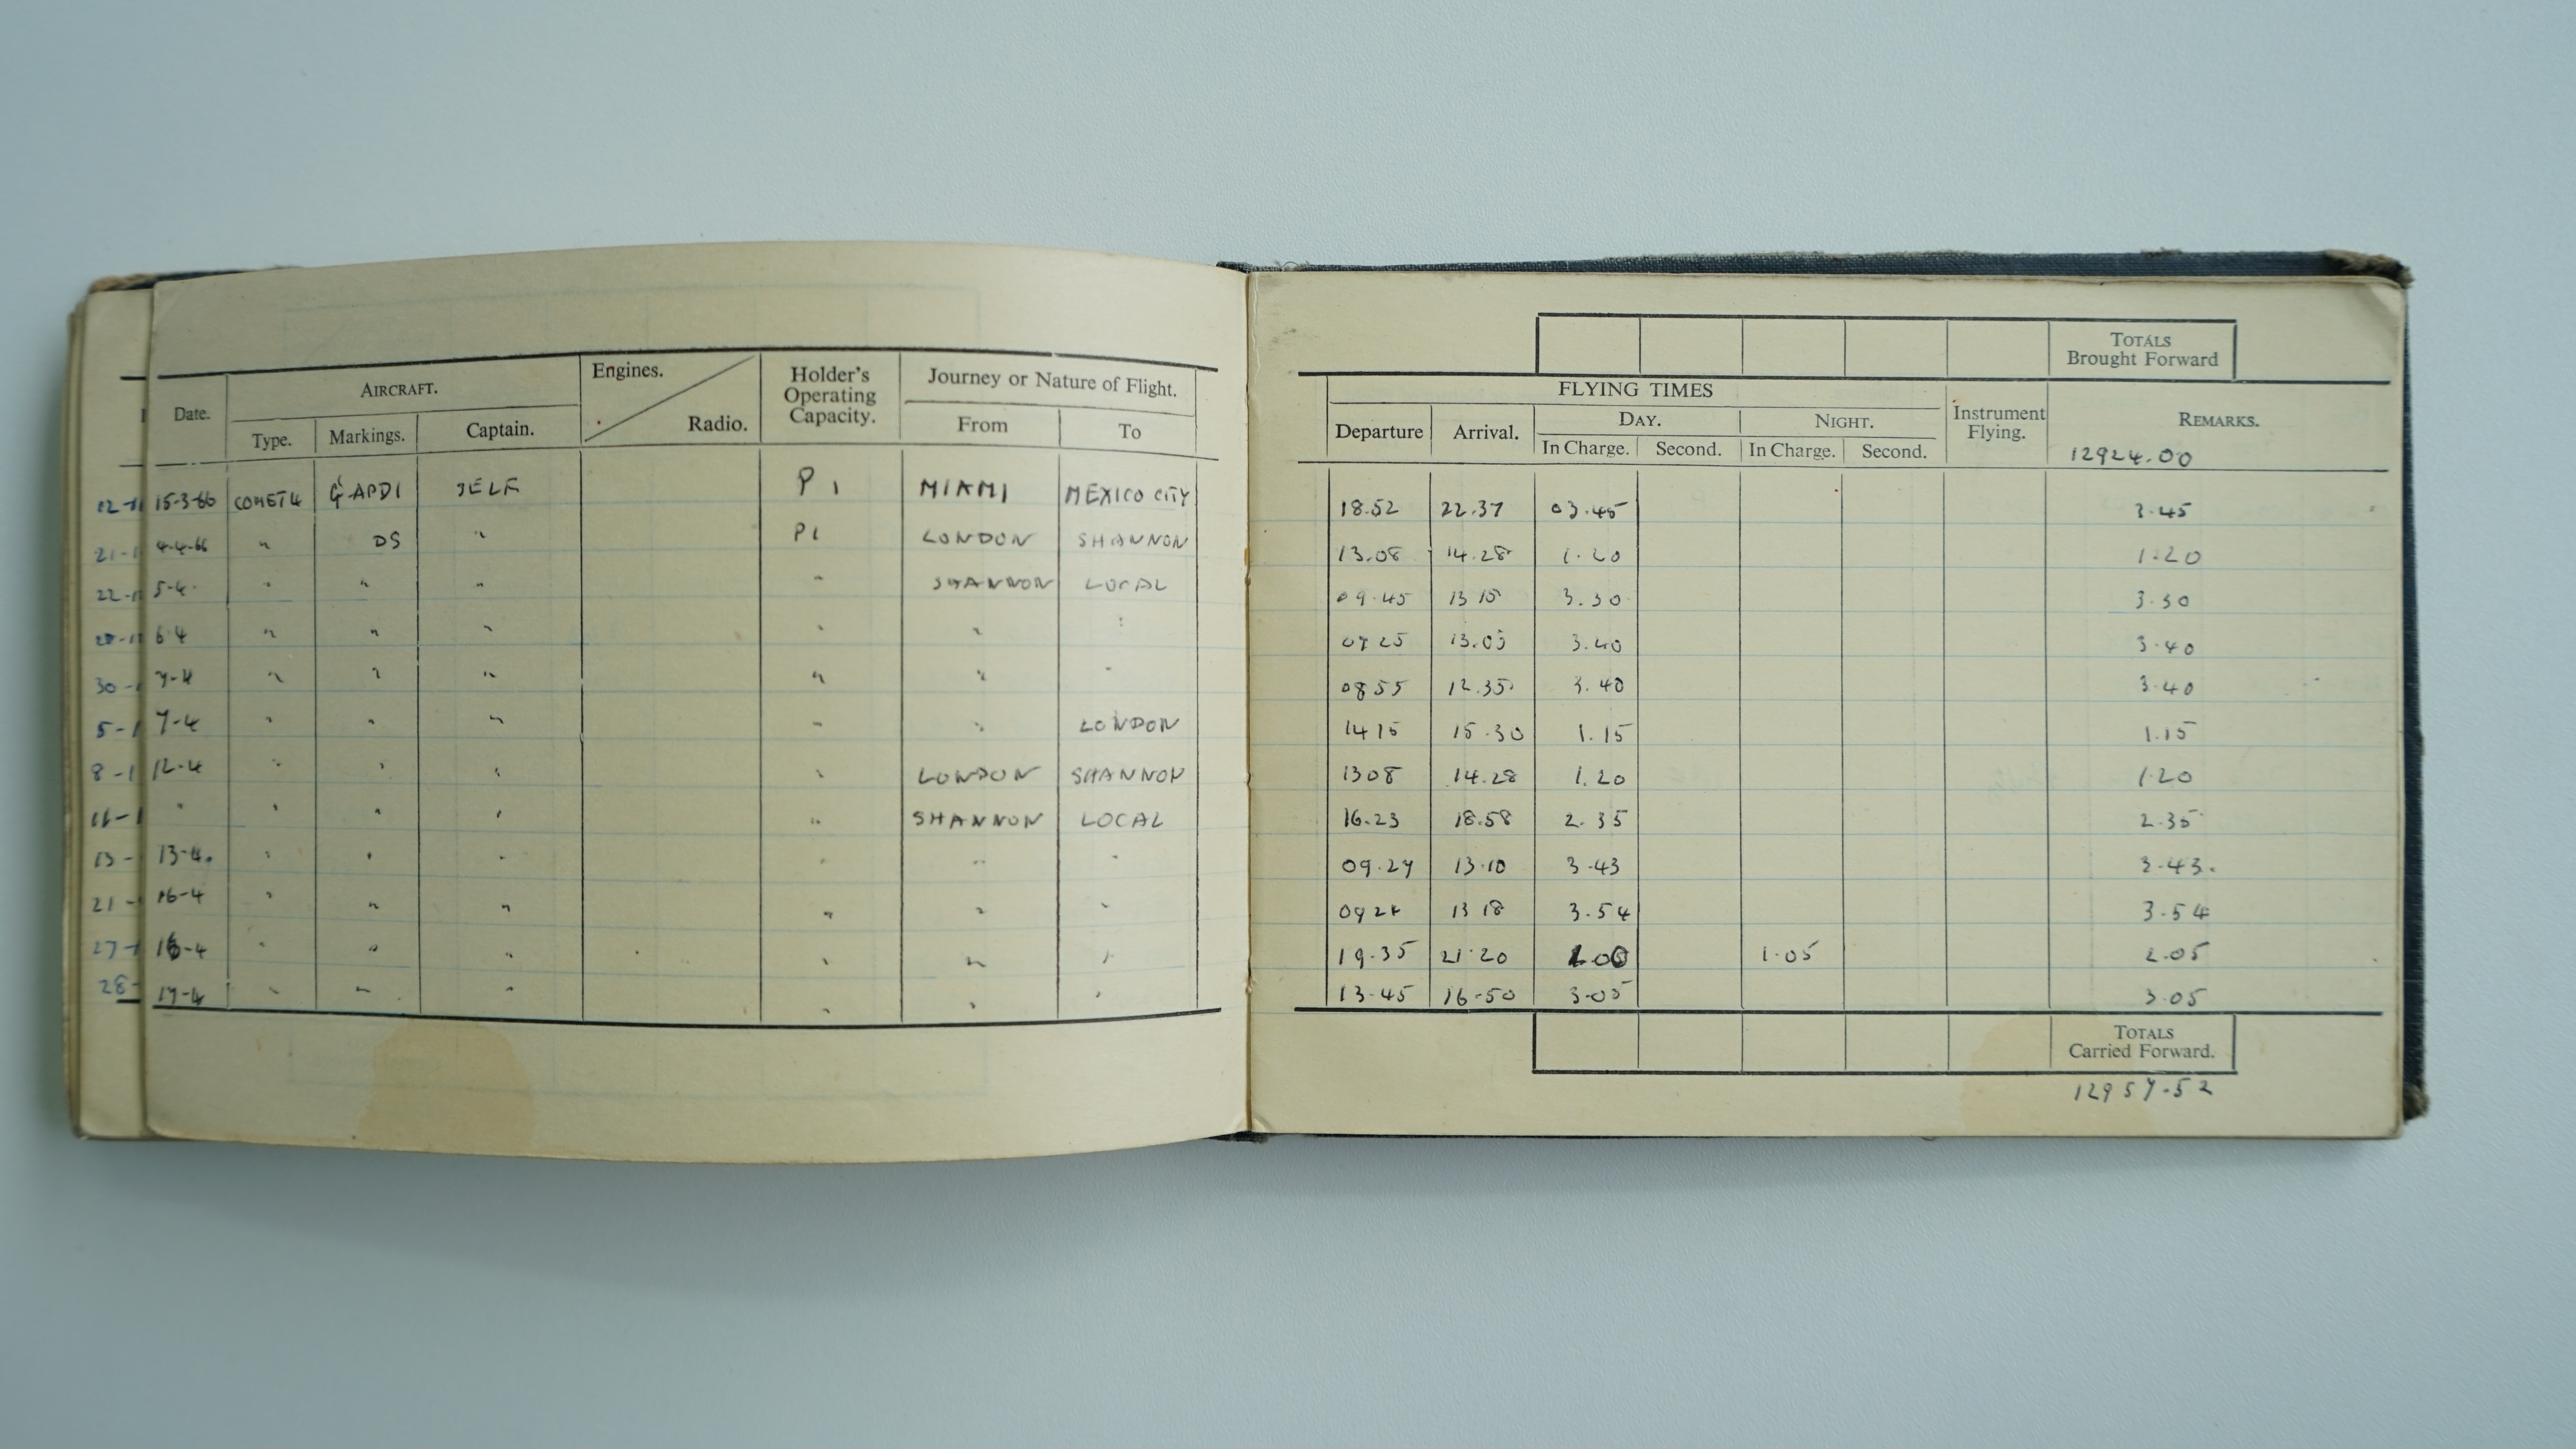 TOTALS
Brought Forward
Date. AIRCRAFT. Engines. Radio. Holder's Operating Capacity. Journey or Nature of Flight.
Type. Markings. Captain. From To
FLYING TIMES
Departure Arrival. DAY. NIGHT. Instrument Flying. REMARKS.
In Charge. Second. In Charge. Second.
12924.00
15-3-66 COMET4 G-APDI SELF P1 MIAMI MEXICO CITY 18.52 22.37 03.45 3.45
4-4-66 " DS " P1 LONDON SHANNON 13.08 14.28 1.20 1.20
5-4 " " " " SHANNON LOCAL 09.45 13 15 3.30 3.30
6.4 " " " " " " 09 25 13.05 3.40 3.40
7-4 " " " " " " 08 55 12.35 3.40 3.40
7-4 " " " " " LONDON 14 15 15.30 1.15 1.15
12-4 " " " " LONDON SHANNON 13 08 14.28 1.20 1.20
" " " " " SHANNON LOCAL 16.23 18.58 2.35 2.35
13-4. " " " " " " 09.27 13.10 3.43 3.43.
16-4 " " " " " " 13 18 3.54 3.54
16-4 " " " " " " 19.35 21.20 1.00 1.05 2.05
17-4 " " " " " " 13.45 16-50 3.05 3.05
TOTALS
Carried Forward.
12957.52
22-1
30-1
5-1
8-1
11-1
13-
21-
27-1
28-